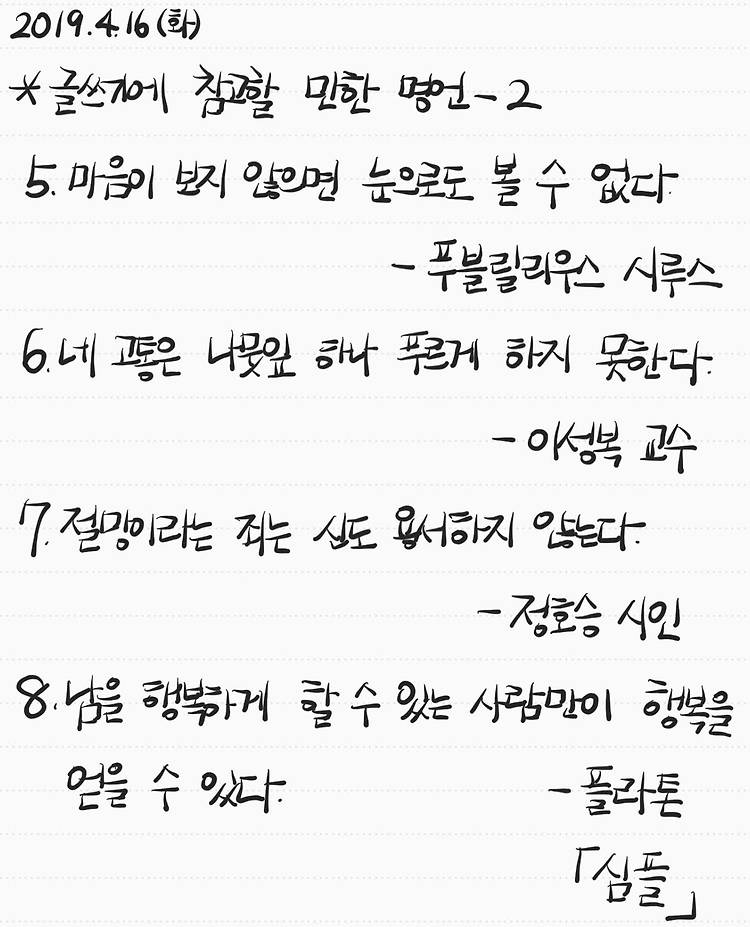 2019.4.16(화)
* 글쓰기에 참고할 만한 명언 - 2
5. 마음이 보지 않으면 눈으로도 볼 수 없다.
- 푸블릴리우스 시루스
6. 네 고통은 나뭇잎 하나 푸르게 하지 못한다.
- 이성복 교수
7. 절망이라는 죄는 신도 용서하지 않는다.
- 정호승 시인
8. 남을 행복하게 할 수 있는 사람만이 행복을
얻을 수 있다. - 플라톤
「심플」